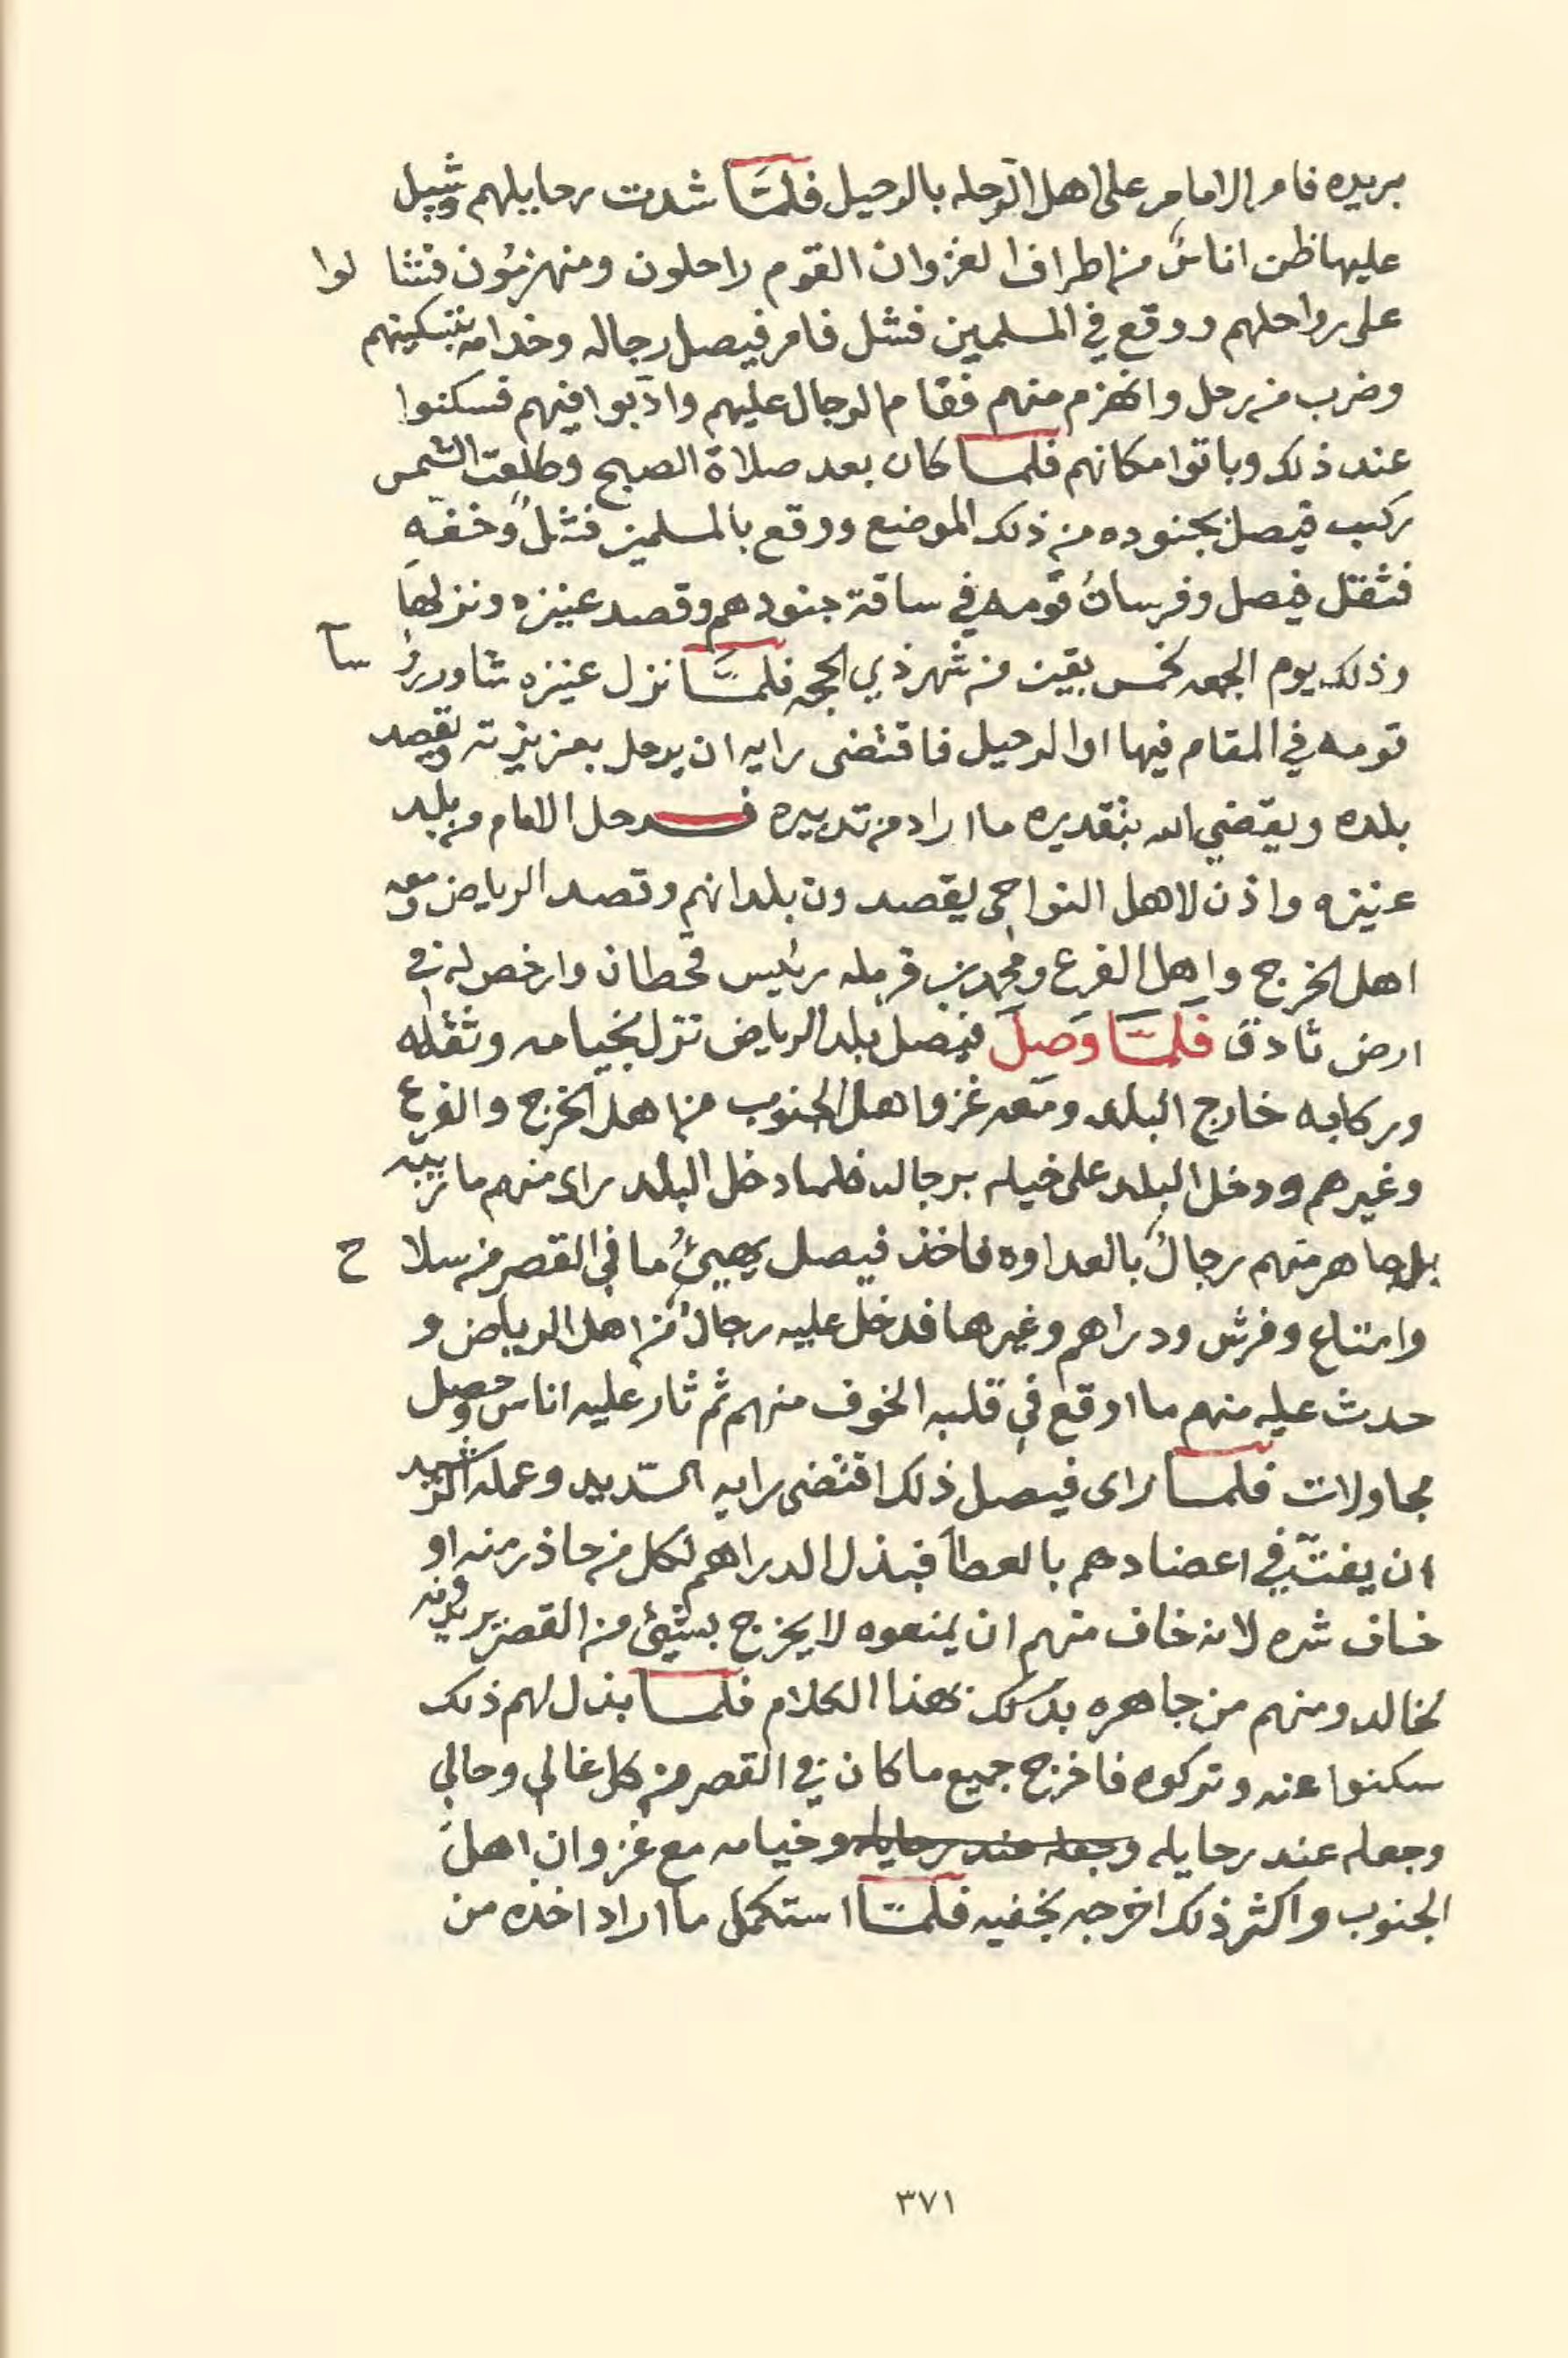 بريده فامر الامام على اهل الرحله بالرحيل فلمَّا شدت رحايلهم وشيل
عليها ظن اناسٌ من اطراف الغزوان القوم راحلون ومنهزمون فتثالوا
على رواحلهم ووقع في المسلمين فشل فامر فيصل رجاله وخدامه بتسكينهم
وضرب من رحل وانهزم منهم فقام الرجال عليهم وادّبوا فيهم فسكنوا
عند ذلك وباتوا مكانهم فلما كان بعد صلاة الصبح وطلعت الشمس
ركب فيصل بجنوده من ذلك الموضع ووقع بالمسلمين فشلٌ وخفّه
فثقل فيصل وفرسانُ قومه في ساقة جنودهم وقصد عنيزه ونزلها
وذلك يوم الجمعه لخمس بقين من شهر ذي الحجه فلمَّا نزل عنيزه شاور رؤسآ
قومه في المقام فيها او الرحيل فاقتضى رايه ان يرحل بعزيزته ويقصد
بلده ويقضي الله بتقديره ما اراد من تدبيره فرحل الامام من بلد
عنيزه واذن لاهل النواحي يقصدون بلدانهم وقصد الرياض ومعه
اهل الخرج واهل الفرع ومحمد بن قرمله رئيس قحطان وارخص له في
ارض ثادق فَلَمَّا وَصلَ فيصل بلد الرياض نزل بخيامه وثقله
وركابه خارج البلد ومعه غزو اهل الجنوب من اهل الخرج والفرع
وغيرهم ودخل البلد على خيله برجاله فلما دخل البلد راى منهم ما يريبه
بل جاهر منهم رجالٌ بالعداوه فاخذ فيصل يهيئُ ما في القصر من سلاح
وامتاع وفرش ودراهم وغيرها فدخل عليه رجالٌ من اهل الرياض و
حدث عليه منهم ما اوقع في قلبه الخوف منهم ثم ثار عليه اناس وحصل
مجاولات فلما راى فيصل ذلك اقتضى رايه السّديد وعمله الرشيد
ان يفتّ في اعضادهم بالعطآ فبذل الدراهم لكل من حاذر منه او
خاف شره لانه خاف منهم ان يمنعوه لا يخرج بشيئ من القصر يريدونه
لخالد ومنهم من جاهره بذلك بهذا الكلام فلما بذل لهم ذلك
سكنوا عنه وتركوه فاخرج جميع ما كان في القصر من كل غالي وحالي
وجعله عند رحايله وجعله عند رحايله وخيامه مع غزوان اهل
الجنوب واكثر ذلك اخرجه بخفيه فلمَّا استكمل ما اراد اخذه من
٣٧١